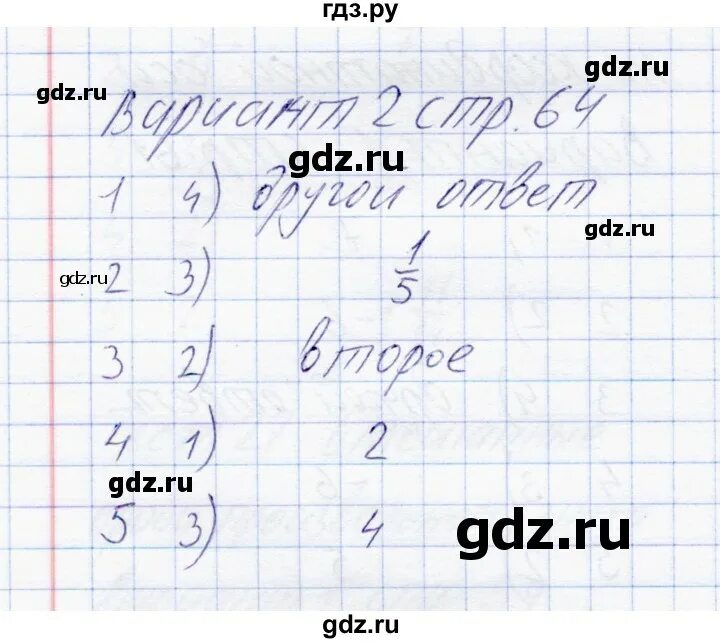 гдз.ру
gdz.ru
gdz.ru
Вариант 2 стр. 64
gdz.ru
1 4) другой ответ
gdz.ru
gdz.ru
2 3) 1/5
3 2) второе
4 1) 2
gdz.ru
5 3) 4
gdz.ru
gdz.ru